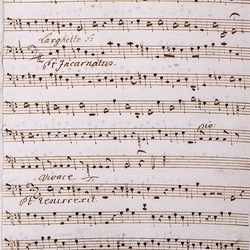 Larghetto
Et Incarnatus.
pio:
Vivace
Et resurrexit.